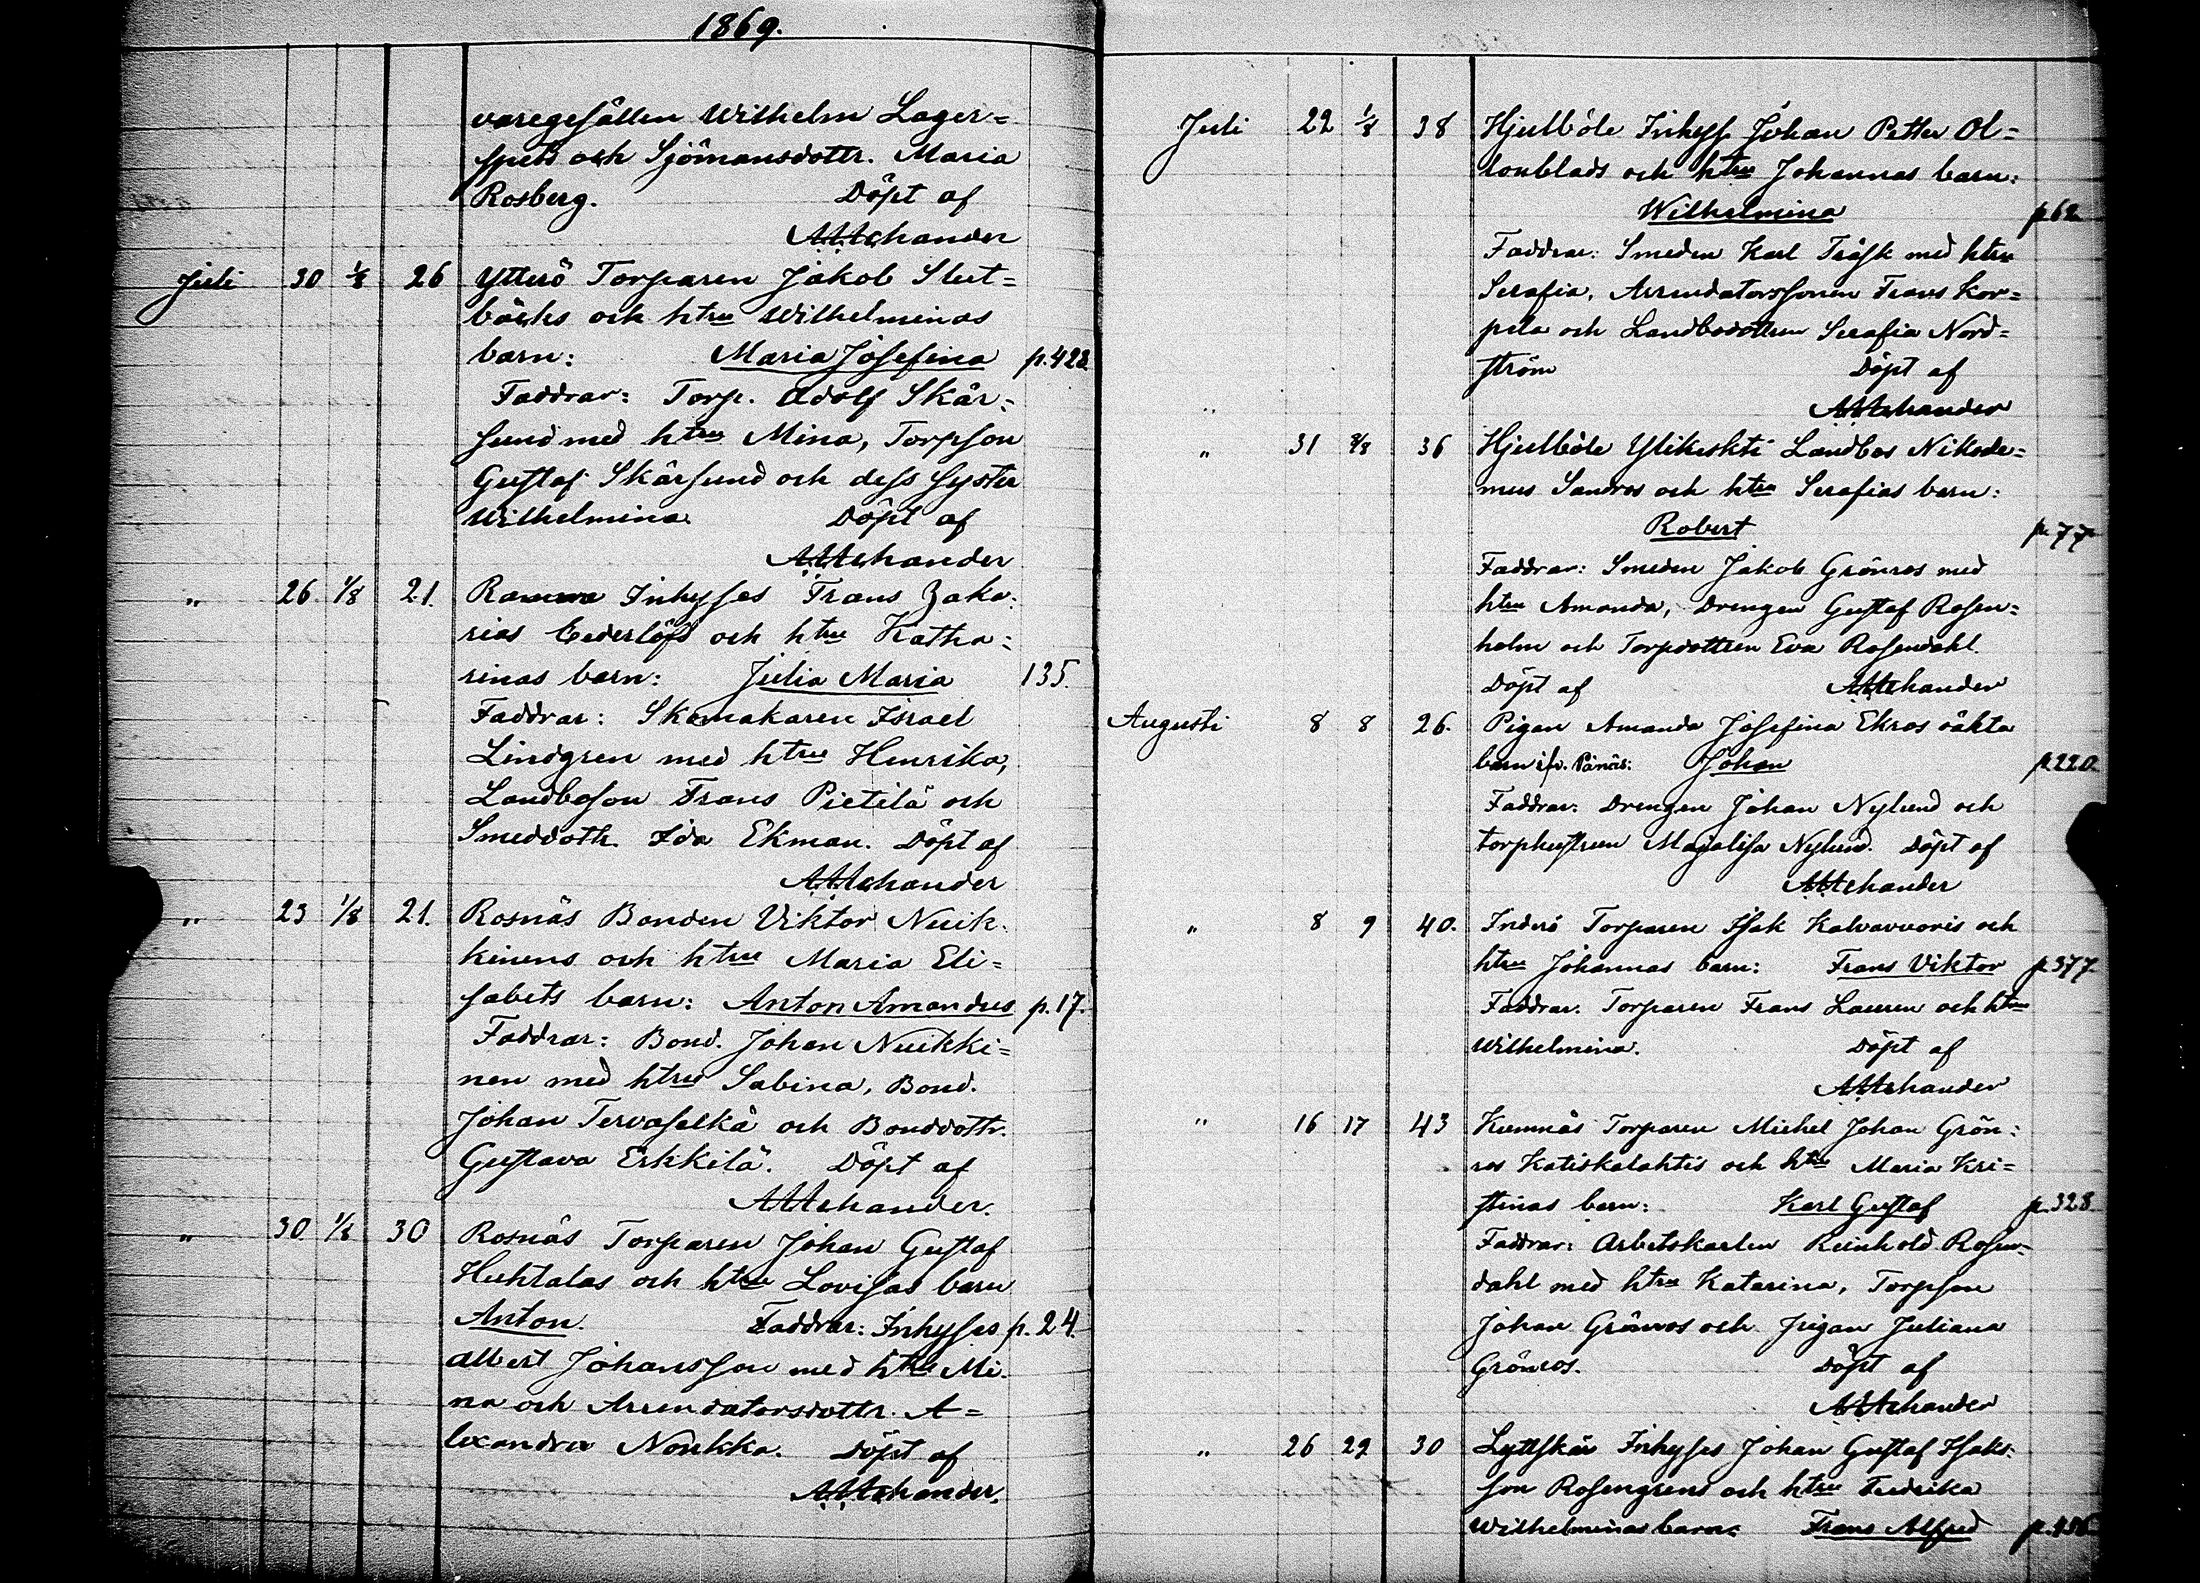 1869.
varegesällen Wilhelm Lager=
spets och Sjömansdottr. Maria
Rosberg. Döpt af
Juli 30 1/8 26 Ytterö Torparen Jakob Slut=
bäcks och htru Wilhelminas
barn: Maria Josefina p.428
Faddrar: Torp. Adolf Skär=
sund med htru Mina, Torpson
Gustaf Skärsund och dess syster
Wilhelmina. Döpt af
" 26. 1/8 21. Inhyses Frans Zaka=
rias Cederlöfs och htru Katha=
rinas barn: Julia Maria 135.
Faddrar: Skomakaren Israel
Lindgren med htru Henrika,
Landboson Frans Pietilä och
Smeddottr. Ida Ekman. Döpt af
" 23 1/8 21. Rosnäs Bonden Viktor Nuik=
kinens och htru Maria Eli=
sabets barn: Anton Amandus p.17.
Faddrar: Bond. Johan Nuikki=
nen med htru Sabina, Bond.
Johan Tervaselkä och Bonddottr.
Gustava Erkkilä. Döpt af
" 30 1/8 30 Rosnäs Torparen Johan Gustaf
Huhtalas och htru Lovisas barn
Anton. Faddrar: Inhyses p.24.
Albert Johansson med htru Mi=
na och Arrendatorsdottr. A=
lexandra Nonkka. Döpt af
Juli 22 1/8 38 Hjulböle Inhys. Johan Petter Ol=
lonblads och htru Johannas barn:
Wilhelmina p62
Faddrar: Smeden Karl Träsk med htru
Serafia, Arrendatorssonen Frans Kor=
pela och Landbodottren Serafia Nord=
ström Döpt af
" 31 8/8 36 Hjulböle Ylikeskti Landbos Nikode=
mus Sandros och htru Serafias barn:
Robert p.77
Faddrar: Smeden Jakob Grönros med
htru Amanda, Drengen Gustaf Rosen=
holm och Torpdottren Eva Rosendahl.
Döpt af
Augusti 8 8 26. Pigan Amanda Josefina Ekros oäkta
barn ifr. Pänäs: Johan p.220
Faddrar: Drengen Johan Nylund och
torphustrun Majalisa Nylund. Döpt af
" 8 9 40. Inderö Torparen Isak Kalvavuoris och
htru Johannas barn: Frans Viktor p377.
Faddrar: Torparen Frans Lauren och htru
Wilhelmina. Döpt af
" 16 17 43 Kumnäs Torparen Michel Johan Grön=
ros Katiskalahtis och htru Maria Kri=
stinas barn: Karl Gustaf p.328
Faddrar: Arbetskarlen Reinhold Rosen=
dahl med htru Katarina, Torpson
Johan Grönros och pigan Juliana
Grönros. Döpt af
" 26 29 30 Lyttskär Inhyses Johan Gustaf Isaks=
son Rosengrens och htru Fredrika
Wilhelminas barn: Frans Alfred